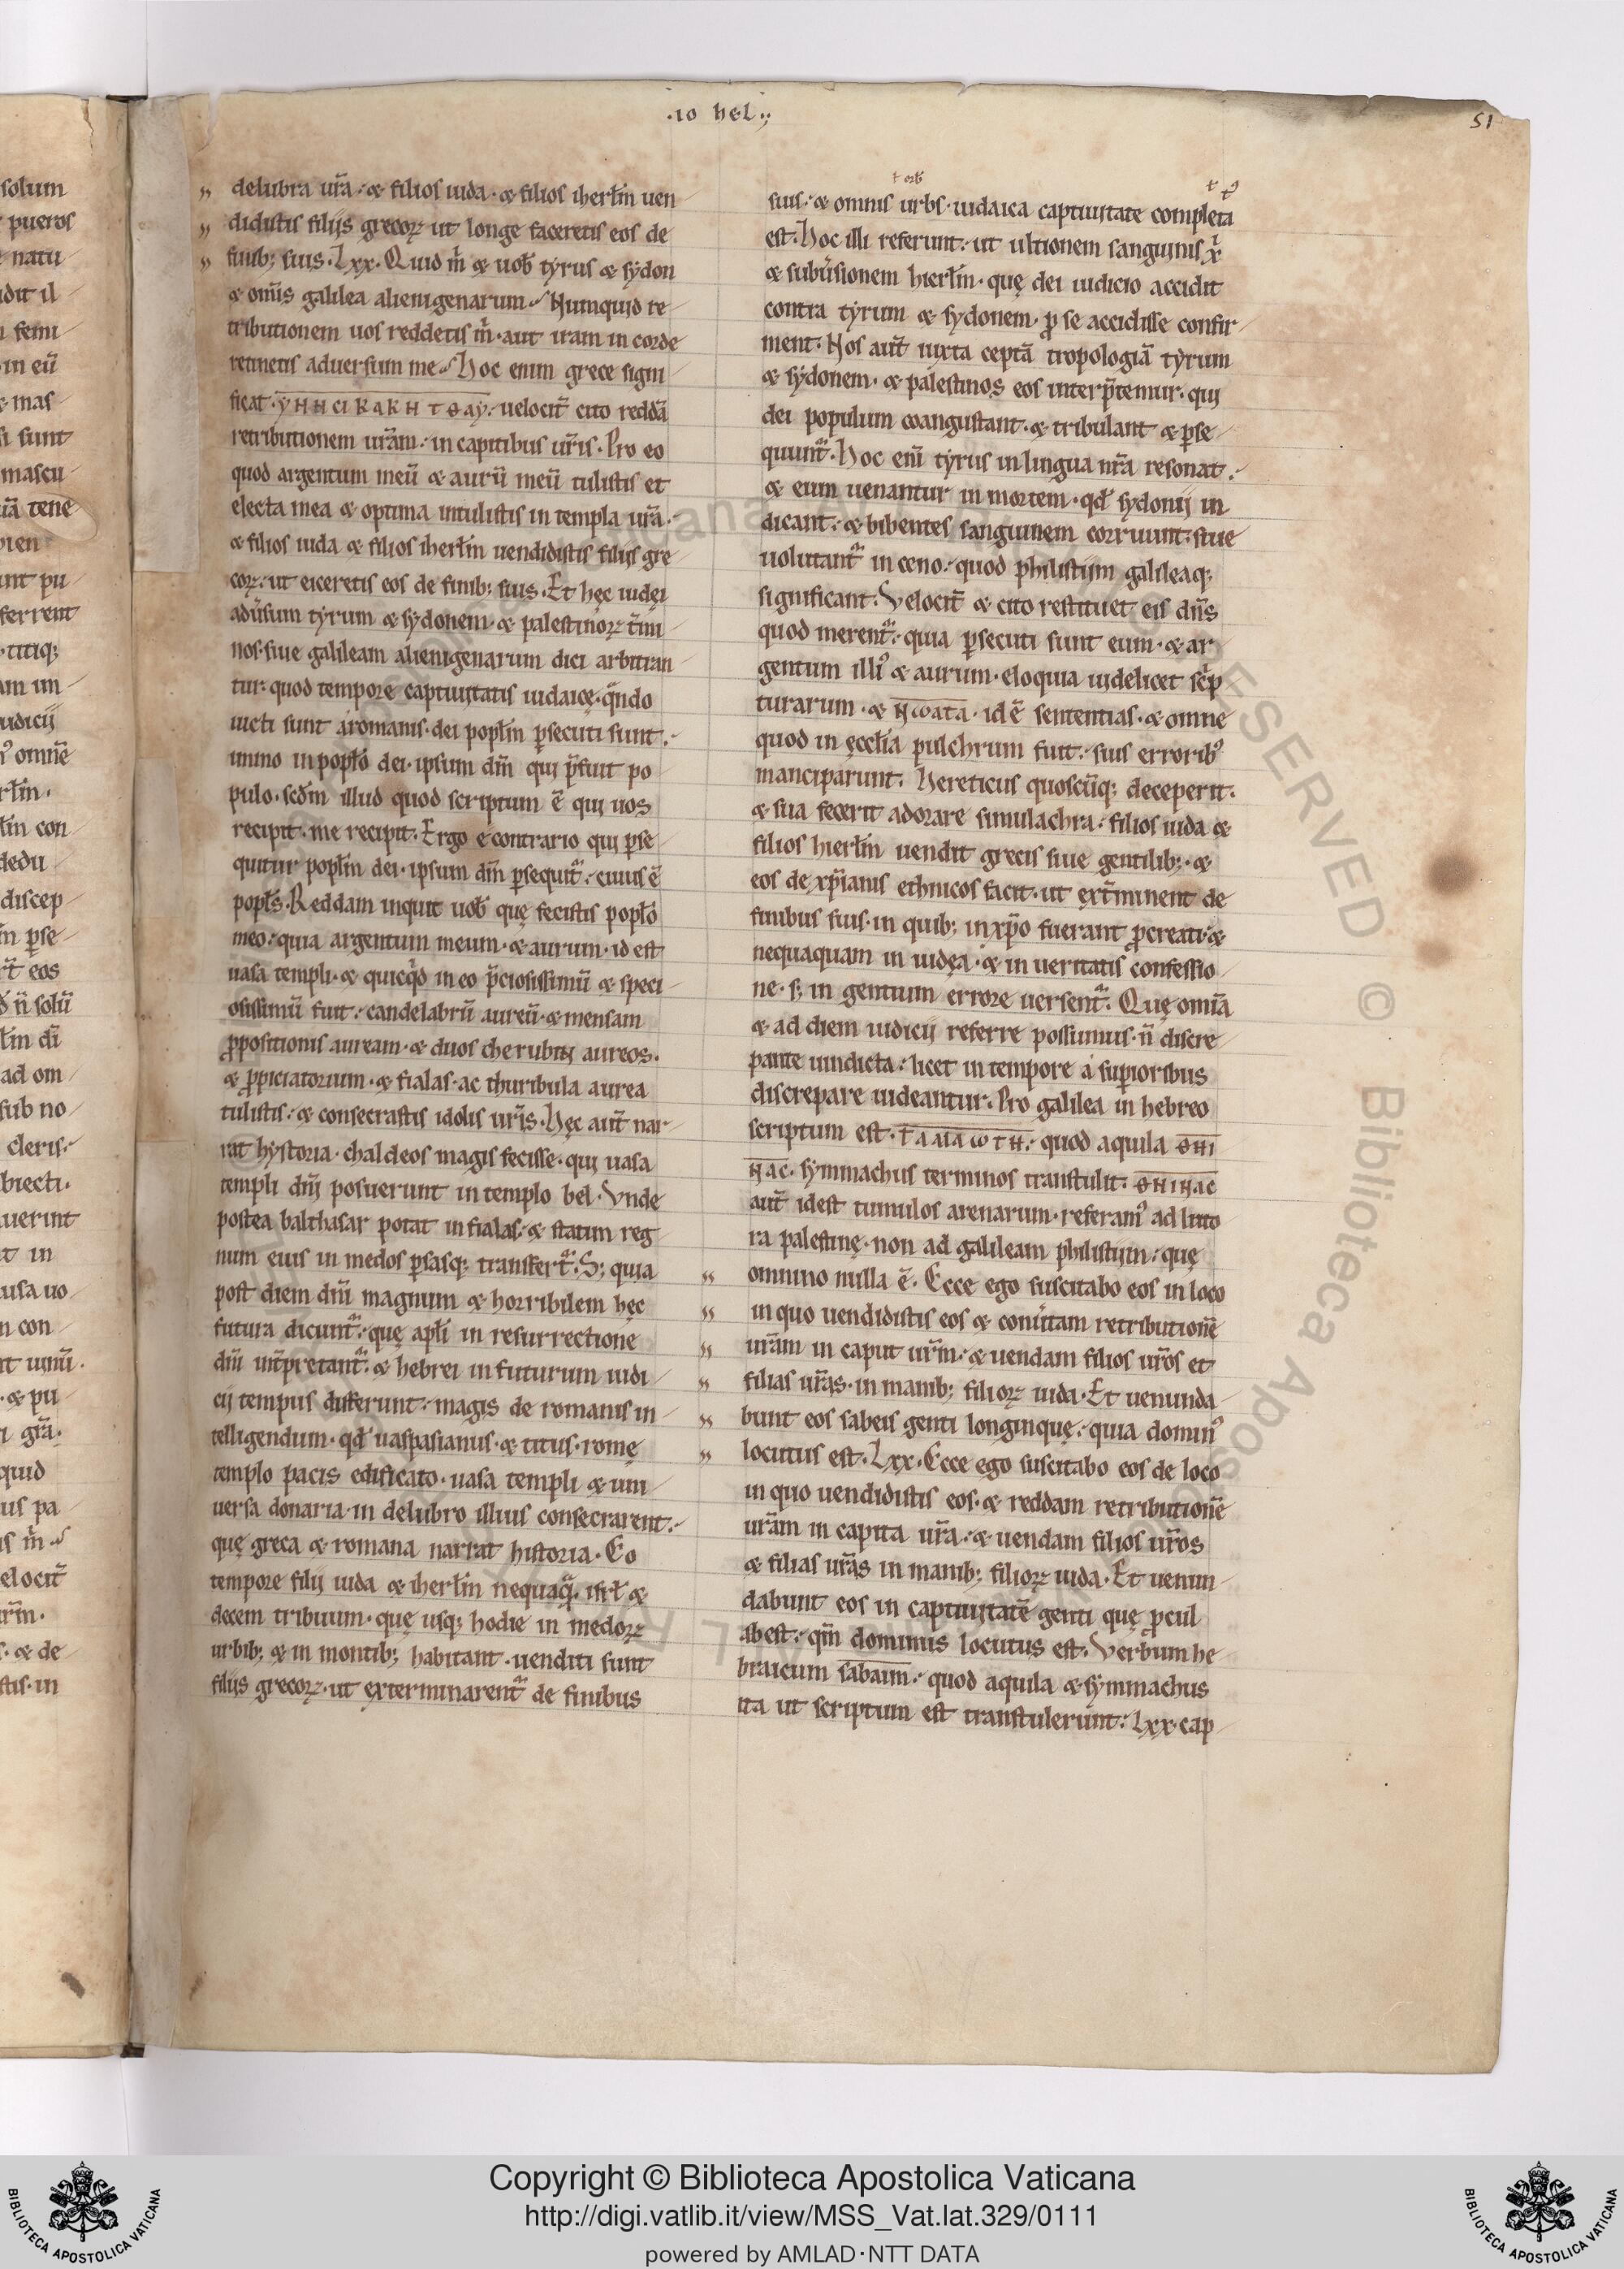 .io hel.
51
delubra ur̃a. & filios iuda. & filios iherłm uen
didistis filijs grecoꝝ ut longe faceretis eos de
finib; suis. Lxx. Quid m̃ & uob̃ tyrus & sydon
& om̃s galilea alienigenarum. Numquid re
tributionem uos reddetis m̃. aut iram in corde
retinetis aduersum me. Hoc enim grece signi
ficat. velocit̃ cito reddã
retributionem ur̃am. in capitibus ur̃is. Pro eo
quod argentum meũ & aurũ meũ tulistis et
electa mea & optima intulistis in templa ur̃a.
& filios iuda & filios iherłm uendidistis filijs gre
coꝝ. ut eiceretis eos de finib; suis. Et hęc iudęi
adũsum tyrum & sydonem. & palestinoꝝ t̃mi
nos. siue galileam alienigenarum dici arbitran
tur. quod tempore captiuitatis iudaicę. q̃ndo
uicti sunt a romanis. dei popłm ꝑsecuti sunt.
immo in popło dei. ipsum dm̃ qui p̃fuit po
pulo. scđm illud quod scriptum ẽ qui uos
recipit. me recipit. Ergo e contrario qui ꝑse
quitur popłm dei. ipsum dm̃ ꝑsequit̃. cuius ẽ
popłs. Reddam inquit uob̃ quę fecistis popło
meo. quia argentum meum. & aurum. id est
uasa templi. & quicq̃d in eo p̃ciosissimũ & speci
osissimũ fuit. candelabrũ aureũ. & mensam
ꝓpositionis auream. & duos cherubin aureos.
& ꝓpiciatorium. & fialas. ac thuribula aurea
tulistis. & consecrastis idolis ur̃is. Hęc aut̃ nar
rat hystoria. chaldeos magis fecisse. qui uasa
templi dm̃j posuerunt in templo bel. Vnde
postea balthasar potat in fialas. & statim reg
num eius in medos ꝑsasq; transfert̃. S; quia
post diem dm̃i magnum & horribilem hęc
futura dicunt̃. quę apłi in resurrectione
dm̃i int̃pretant̃. & hebrei in futurum iudi
cij tempus differunt. magis de romanis in
telligendum. qđ uaspasianus. & titus. romę
templo pacis edificato. uasa templi & uni
uersa donaria in delubro illius consecrarent.
quę greca & romana narrat historia. Eo
tempore filij iuda & iherłm nequaq̃. isrł &
decem tribuum. quę usq; hodie in medoꝝ
urbib; & in montib; habitant. uenditi sunt
filijs grecoꝝ. ut exterminarent̃ de finibus
suis. & omnis urbs. iudaica captiuitate completa
est. Hoc illi referunt. ut ultionem sanguinis x̃
& subũsionem hierłm. quę dei iudicio accidit
contra tyrum & sydonem. ꝓ se accidisse confir
ment. Nos aut̃ iuxta ceptã tropologiã tyrum
& sydonem. & palestinos eos interp̃temur. qui
dei populum coangustant. & tribulant & ꝑse
quunt̃. Hoc enĩ tyrus in lingua nr̃a resonat.
& eum uenantur in mortem. qđ sydonij in
dicant. & bibentes sanguinem corruunt. siue
uolutant̃ in ceno. quod philistijm galileaq;
significant. Velocit̃ & cito restituet eis dñs
quod merent̃. quia ꝑsecuti sunt eum. & ar
gentum illi᾿ & aurum. eloquia uidelicet sc̃p
turarum. & id ẽ sententias. & omne
quod in ęccłia pulchrum fuit. suis errorib᾿
manciparunt. Hereticus quoscũq; deceperit.
& sua fecerit adorare simulachra. filios iuda &
filios hierłm uendit grecis siue gentilib;. &
eos de xp̃ianis ethnicos facit. ut ext̃minent de
finibus suis. in quib; in xp̃o fuerant ꝓcreati. &
nequaquam in iudęa. & in ueritatis confessio
ne. s; in gentium errore uersent̃. Quę omĩa
& ad diem iudicij referre possumus. ñ discre
pante uindicta. licet in tempore a suꝑioribus
discrepare uideantur. Pro galilea in hebreo
scriptum est. quod aquila ΘΗΙ
ΝΑϹ. symmachus terminos transtulit. ΘΗΙΝΑϹ
aut̃ idest tumulos arenarum. referam᾿ ad litto
ra palestinę. non ad galileam philistijm. quę
omnino nulla ẽ. Ecce ego suscitabo eos in loco
in quo uendidistis eos & conũtam retributionẽ
ur̃am in caput ur̃m. & uendam filios ur̃os et
filias ur̃as. in manib; filioꝝ iuda. Et uenunda
bunt eos sabeis genti longinquę. quia domin᾿
locutus est. Lxx. Ecce ego suscitabo eos de loco
in quo uendidistis eos. & reddam retributionẽ
ur̃am in capita ur̃a. & uendam filios ur̃os
& filias ur̃as in manib; filioꝝ iuda. Et uenun
dabunt eos in captiuitatẽ genti quę ꝓcul
abest. qm̃ dominus locutus est. Verbum he
braicum sabaim. quod aquila & symmachus
ita ut scriptum est transtulerunt. Lxx. cap
Copyright © Biblioteca Apostolica Vaticana
http://digi.vatlib.it/view/MSS_Vat.lat.329/0111
powered by AMLAD·NTT DATA
BIBLIOTECA APOSTOLICA VATICANA
BIBLIOTECA APOSTOLICA VATICANA